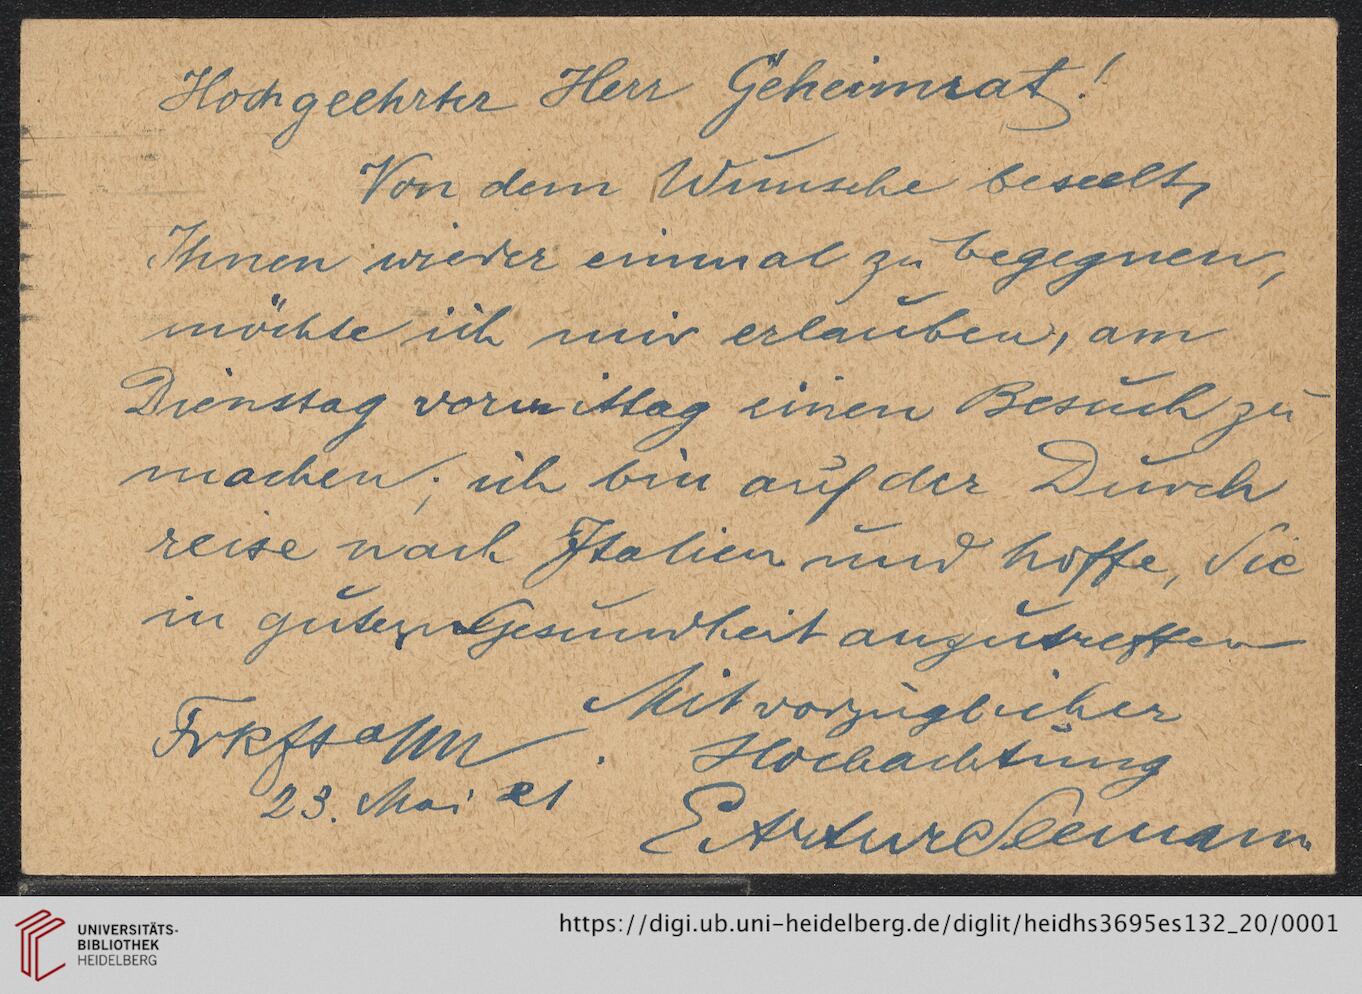 Hochgeehrter Herr Geheimrat!
Von dem Wunsche beseelt,
Ihnen wieder einmal zu begegnen,
möchte ich mir erlauben, am
Dienstag vormittag einen Besuch zu
machen; ich bin auf der Durch
reise nach Italien und hoffe, Sie
in guter Gesundheit anzutreffen
Mit vorzüglicher
Frkft a/M
Hochachtung
23. Mai 21
E. Artur Seemann
UNIVERSITÄTS-
BIBLIOTHEK
HEIDELBERG
https://digi.ub.uni-heidelberg.de/diglit/heidhs3695es132_20/0001